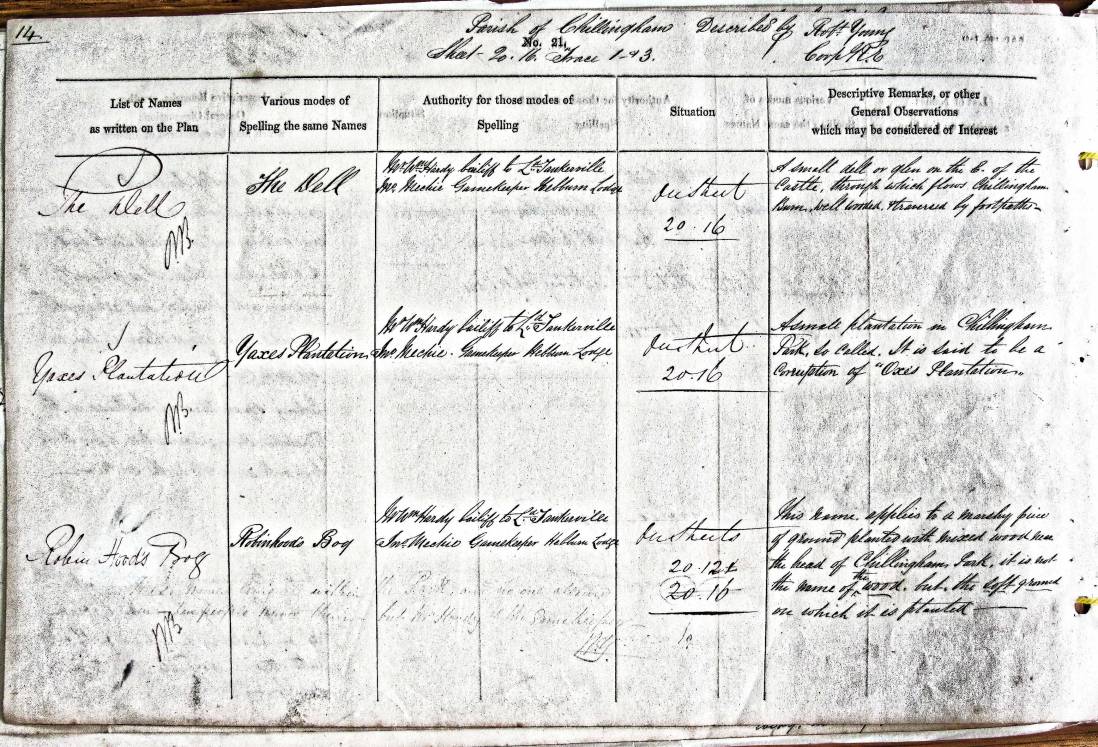 14.
Parish of Chillingham Described by Robt. Young
No. 21.
Sheet 20.16. Trace 1 & 3. Corpl. R.E
List of Names
as written on the Plan
Various modes of
Spelling the same Names
Authority for those modes of
Spelling
Situation
Descriptive Remarks, or other
General Observations
which may be considered of Interest
The Dell
The Dell
Mr. Wm. Hardy bailiff to Ld. Tankerville
Jno. Mechie Gamekeeper Hebburn Lodge
On Sheet
20.16
A small dell or glen on the E. of the
Castle, through which flows Chillingham
Burn, well wooded, & traversed by footpaths
Yaxes Plantation
Yaxes Plantation
Mr. Wm. Hardy bailiff to Ld. Tankerville
Jno. Mechie. Gamekeeper Hebburn Lodge
On Sheet
20.16
A small plantation in Chillingham
Park, so called. It is said to be a
Corruption of "Oxes Plantation"
Robin Hood's Bog
Robinhoods Bog
Mr. Wm. Hardy bailiff to Ld. Tankerville
Jno. Mechie Gamekeeper Hebburn Lodge
On Sheets
20.12 &
20.16
This name applies to a marshy piece
of ground planted with mixed wood near
the head of Chillingham Park, it is not
the name of the wood, but the soft ground
on which it is planted
within the Park, and no one allowed
people know them but Mr Hardy & the Gamekeeper